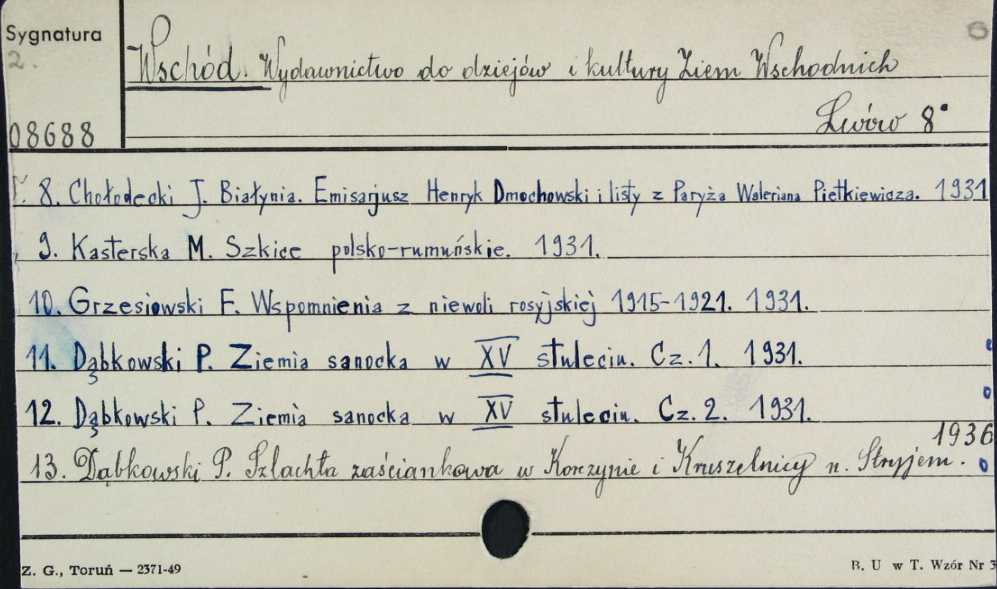 Sygnatura
2.
08688
Wschód. Wydawnictwo do dziejów i kultury Ziem Wschodnich
Lwów 8°
8. Chołodecki J. Białynia. Emisarjusz Henryk Dmochowski i listy z Paryża Waleriana Pietkiewicza. 1931
9. Kasterska M. Szkice polsko-rumuńskie. 1931.
10. Grzesiowski F. Wspomnienia z niewoli rosyjskiej 1915-1921. 1931.
11. Dąbkowski P. Ziemia sanocka w XV stuleciu. Cz. 1. 1931.
12. Dąbkowski P. Ziemia sanocka w XV stuleciu. Cz. 2. 1931.
1936
13. Dąbkowski P. Szlachta zaściankowa w Korczynie i Kruszelnicy n. Stryjem.
Z. G., Toruń — 2371-49
B. U w T. Wzór Nr 3